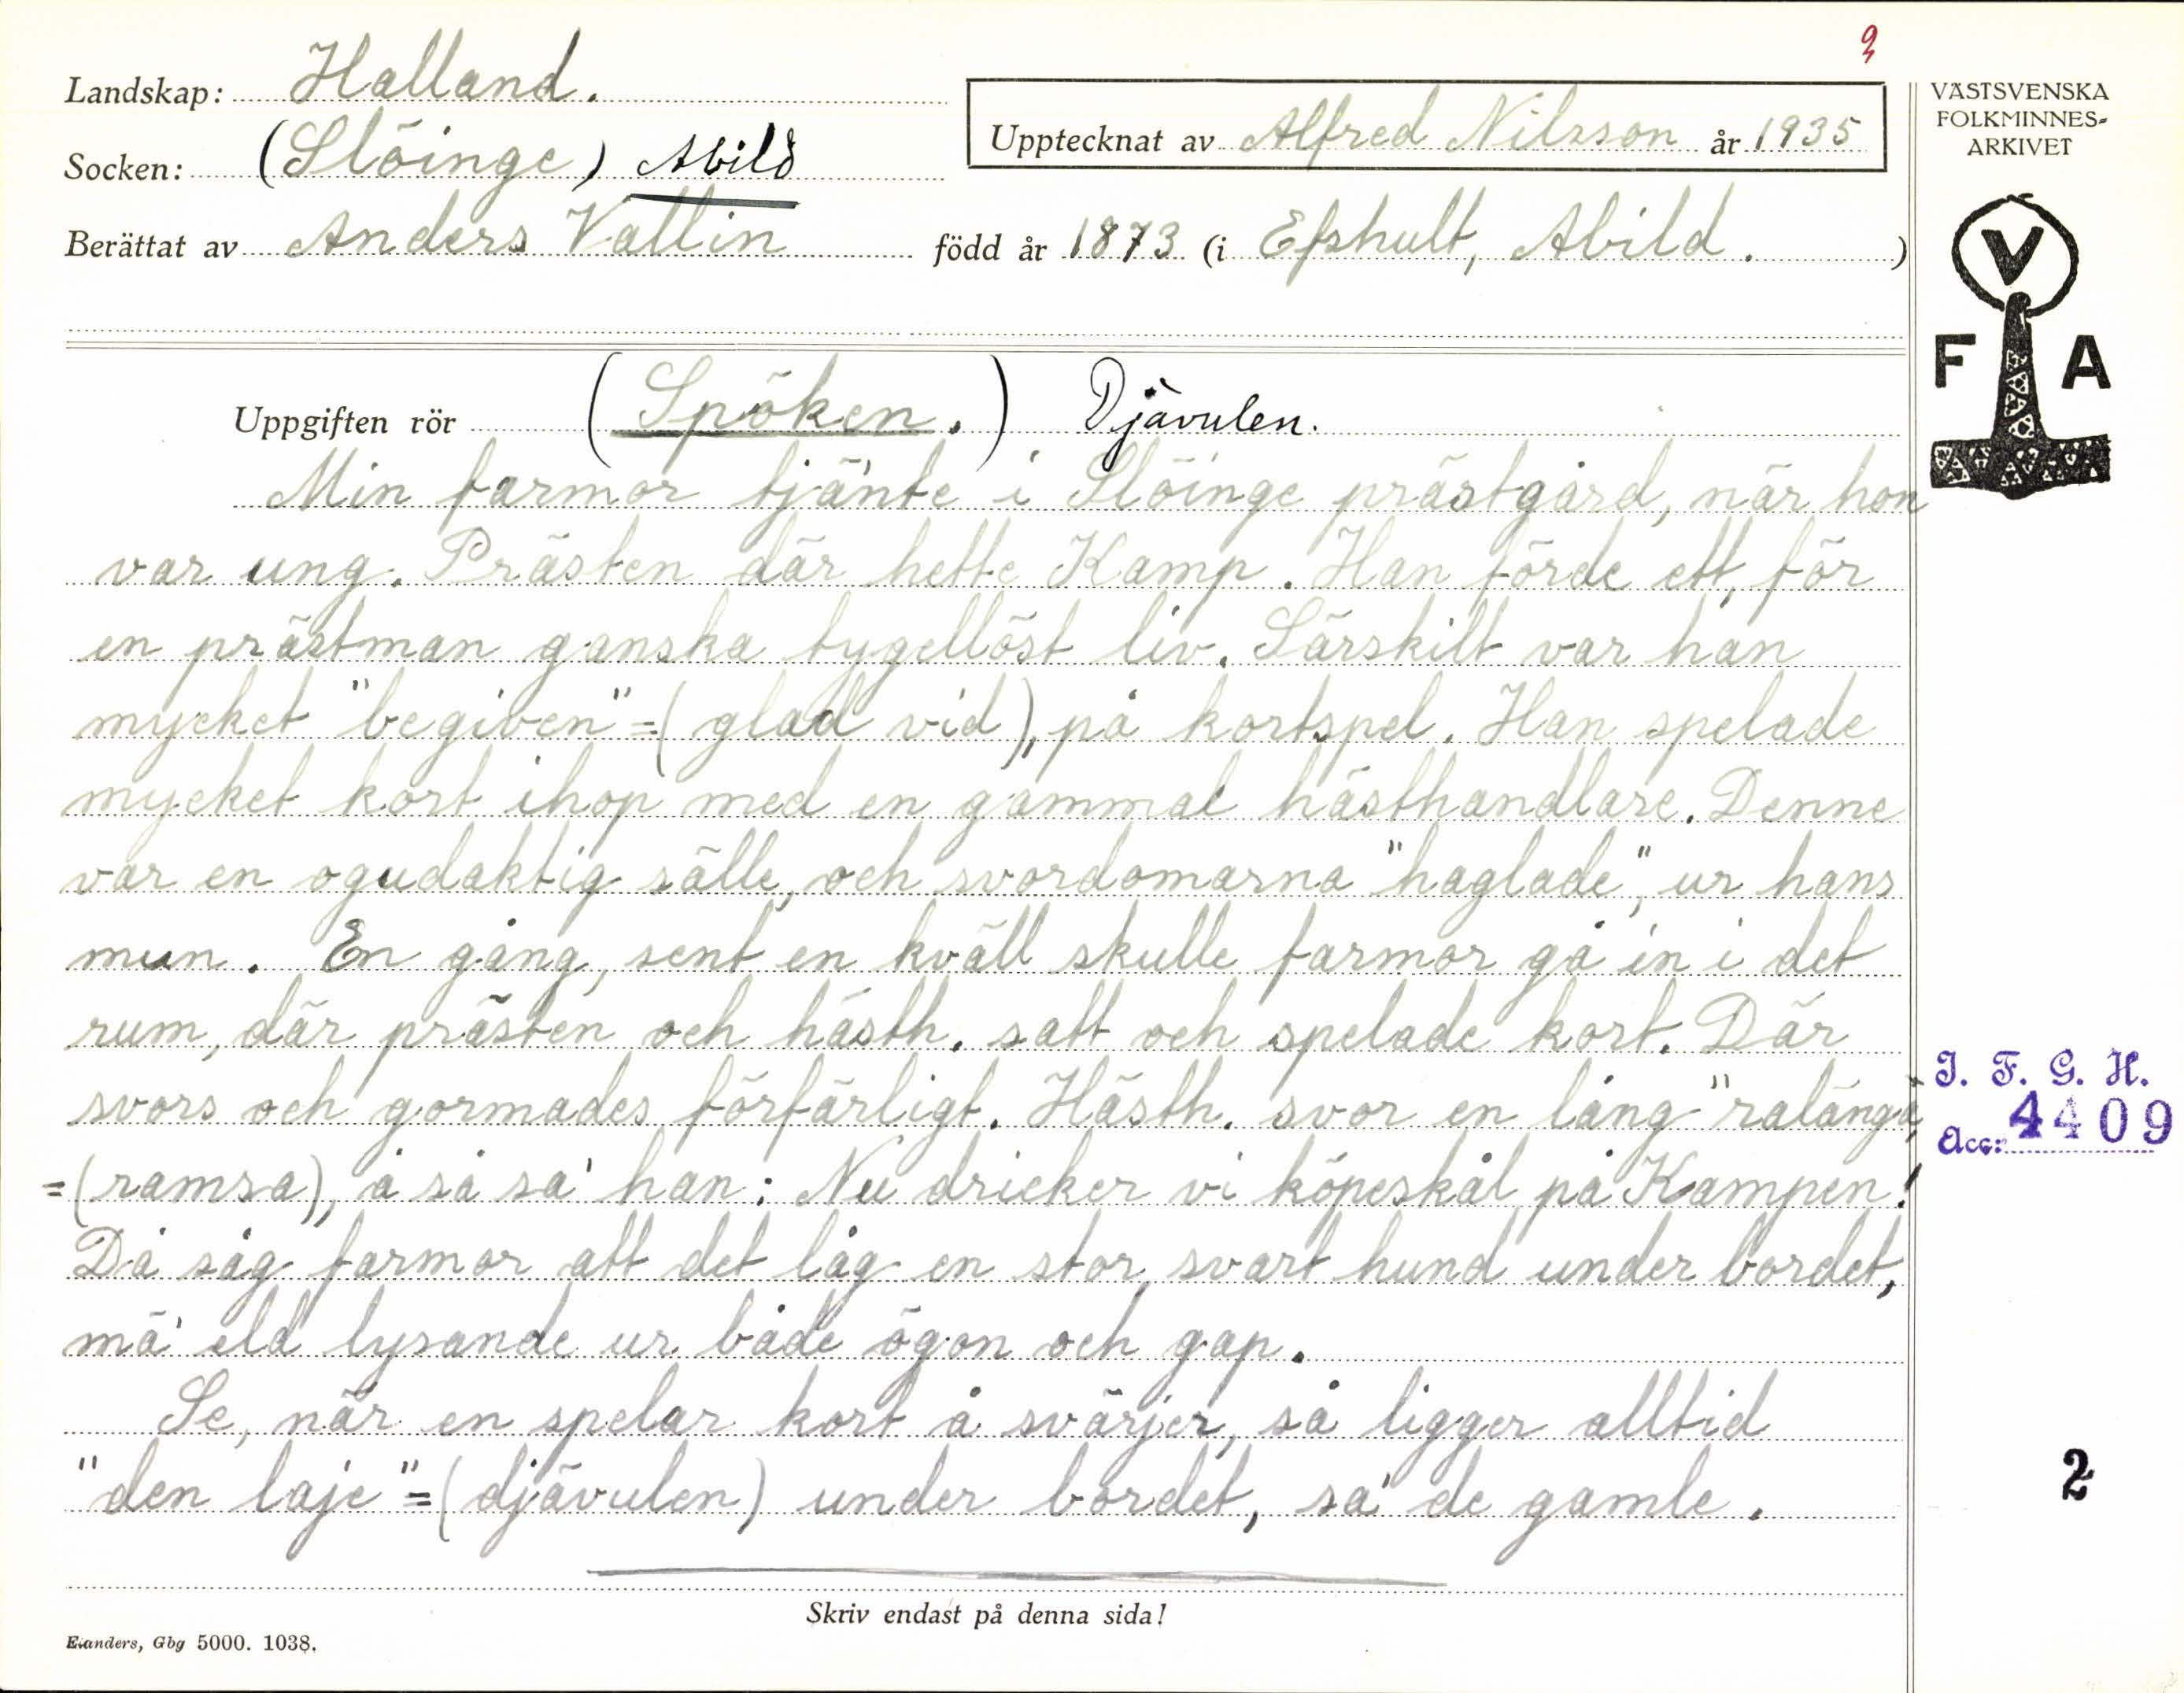 3
Landskap: Halland.
Socken: (Slöinge) Abild
Upptecknat av Alfred Nilsson år 1935
Berättat av Anders Vallin född år 1873 (i Efshult, Abild.)
VÄSTSVENSKA
FOLKMINNES-
ARKIVET
V
F A
Uppgiften rör (Spöken.) Djävulen.
Min farmor tjänte i Slöinge prästgård, när hon
var ung. Prästen där hette Kamp. Han förde ett, för
en prästman ganska tygellöst liv. Särskilt var han
mycket "begiven"=(glad vid), på kortspel. Han spelade
mycket kort ihop med en gammal hästhandlare. Denne
var en ogudaktig sälle, och svordomarna "haglade", ur hans
mun. En gång, sent en kväll skulle farmor gå in i det
rum, där prästen och hästh. satt och spelade kort. Där
svors och gormades förfärligt. Hästh. svor en lång "ralänga",
=(ramsa), å så sa' han: Nu dricker vi köpeskål på Kampen!
Då såg farmor att det låg en stor, svart hund under bordet,
mä' eld lysande ur både ögon och gap.
Se, när en spelar kort å svärjer, så ligger alltid
"den laje"=(djävulen) under bordet, sa' de gamle.
I. F. G. H.
Acc: 4409
2
Skriv endast på denna sida!
Elanders, Gbg 5000. 1038.